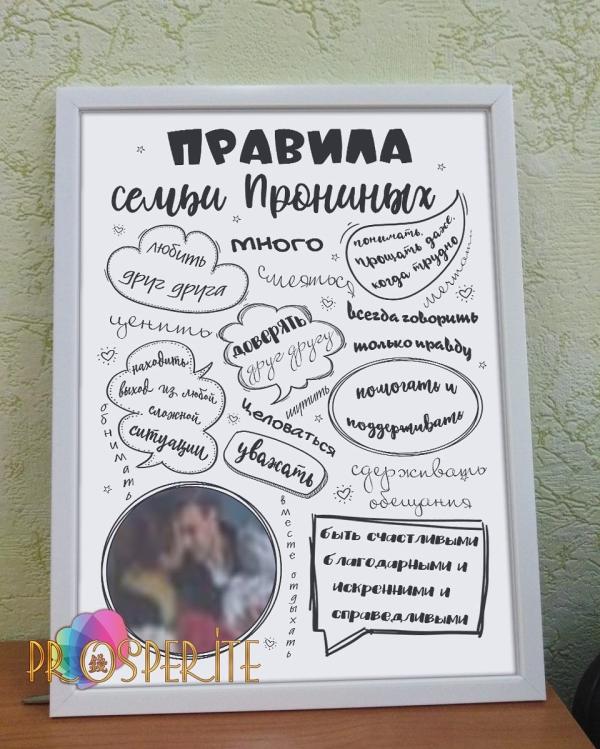 ПРАВИЛА
семьи Прониных
любить
друг друга
много
смеяться
понимать,
прощать даже,
когда трудно
мечтать
ценить
доверять
друг другу
всегда говорить
только правду
находить
выход из любой
сложной
ситуации
обнимать
шутить
целоваться
помогать и
поддерживать
уважать
сдерживать
обещания
вместе отдыхать
быть счастливыми
благодарными и
искренними и
справедливыми
PROSPERITE